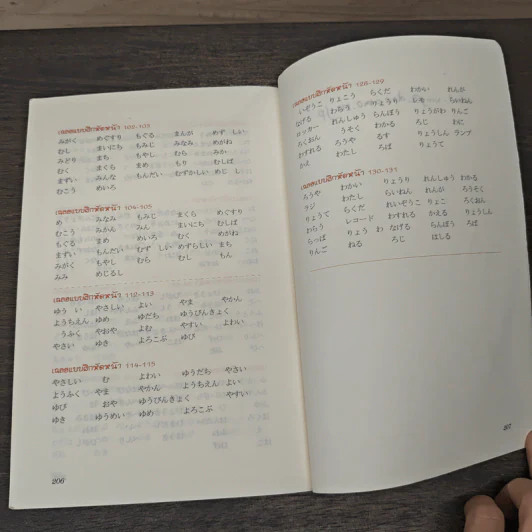 เฉลยแบบฝึกหัดหน้า 102-103
みがく めぐすり もぐる まんが めず しい
むし まいにち もみじ みなみ めがね
みどり まち もやし むら みかん
むく まくら まめ もり むしば
まずい みんな もんだい むずかしい めじ し
むこう めいろ
เฉลยแบบฝึกหัดหน้า 104-105
め みなみ もみじ まくら めぐすり
むこう みかん みん まいにち むしば
もぐる まめ めいろ むく めがね
まずい もんだい むず しい めずらしい まち
みがく もやし むら むし もん
みみ めじるし
เฉลยแบบฝึกหัดหน้า 112-113
ゆう い やさしい よい やま やかん
ようちえん ゆめ ゆだち ゆうびんきょく
うふく やおや よむ やすい よわい
やさい ゆき よろこぶ ゆび
เฉลยแบบฝึกหัดหน้า 114-115
やさしい む よわい ゆうだち やさい
ようふく やま やかん ようちえん よい
ゆび おや ゆうびんきょく やすい
ゆき ゆうめい ゆめ よろこぶ
206
เฉลยแบบฝึกหัดหน้า 128-129
いぞうこ りょこう らくだ わかい れんが
なげる わらう りょうり レモ らいねん
ロッカー れんしゅう らんぼう りょうがわ りんご
ろくおん うそく わかる ろじ わに
わすれる ろうや るす りょうしん ランプ
かえ わたし ろば りょうて
เฉลยแบบฝึกหัดหน้า 130-131
ろうや わかい りょうり れんしゅう わかる
ラジ わたし らいねん れんが ろうそく
りょうて らくだ れいぞうこ りょこう ろくおん
わらう レコード わすれる かえる りょうしん
らっぱ りょう わ なげる らんぼう ろば
りんご ねる ろじ はしる